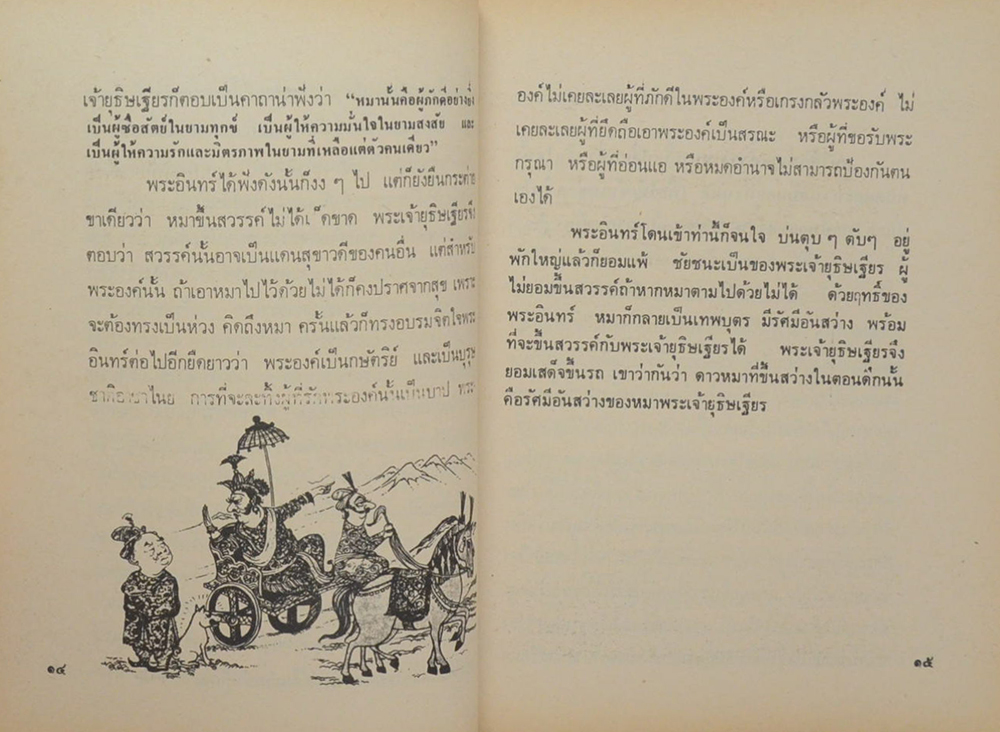 เจ้ายุธิษเฐียรก็ตอบเป็นคาถาน่าฟังว่า “หมานั้นคือผู้ภักดีอย่างยิ่ง
เป็นผู้ซื่อสัตย์ในยามทุกข์ เป็นผู้ให้ความมั่นใจในยามสงสัย และ
เป็นผู้ให้ความรักและมิตรภาพในยามที่เหลือแต่ตัวคนเดียว”
พระอินทร์ได้ฟังดังนั้นก็งง ๆ ไป แต่ก็ยังยืนกระต่าย
ขาเดียวว่า หมาขึ้นสวรรค์ไม่ได้เด็ดขาด พระเจ้ายุธิษเฐียรจึง
ตอบว่า สวรรค์นั้นอาจเป็นแดนสุขาวดีของคนอื่น แต่สำหรับ
พระองค์นั้น ถ้าเอาหมาไปไว้ด้วยไม่ได้ก็คงปราศจากสุข เพราะ
จะต้องทรงเป็นห่วง คิดถึงหมา ครั้นแล้วก็ทรงอบรมจิตใจพระ
อินทร์ต่อไปอีกยืดยาวว่า พระองค์เป็นกษัตริย์ และเป็นบุรุษ
ชาติอาชาไนย การที่จะละทิ้งผู้ที่รักพระองค์นั้นเป็นบาป พระ
๑๔
องค์ไม่เคยละเลยผู้ที่ภักดีในพระองค์หรือเกรงกลัวพระองค์ ไม่
เคยละเลยผู้ที่ยึดถือเอาพระองค์เป็นสรณะ หรือผู้ที่ขอรับพระ
กรุณา หรือผู้ที่อ่อนแอ หรือหมดอำนาจไม่สามารถป้องกันตน
เองได้
พระอินทร์โดนเข้าท่านี้ก็จนใจ บ่นตุบ ๆ ตับๆ อยู่
พักใหญ่แล้วก็ยอมแพ้ ชัยชนะเป็นของพระเจ้ายุธิษเฐียร ผู้
ไม่ยอมขึ้นสวรรค์ถ้าหากหมาตามไปด้วยไม่ได้ ด้วยฤทธิ์ของ
พระอินทร์ หมาก็กลายเป็นเทพบุตร มีรัศมีอันสว่าง พร้อม
ที่จะขึ้นสวรรค์กับพระเจ้ายุธิษเฐียรได้ พระเจ้ายุธิษเฐียรจึง
ยอมเสด็จขึ้นรถ เขาว่ากันว่า ดาวหมาที่ขึ้นสว่างในตอนดึกนั้น
คือรัศมีอันสว่างของหมาพระเจ้ายุธิษเฐียร
๑๕